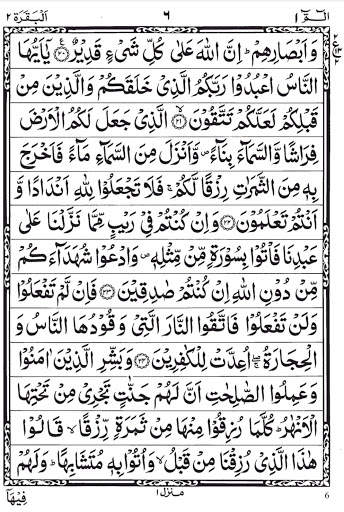 الٓمّٓ ١ ٦ اَلْبَقَرَة ٢
وَاَبْصَارِهِمْ ؕ اِنَّ اللهَ عَلٰى كُلِّ شَىْءٍ قَدِيْرٌ ﴿۲۰﴾ يٰٓاَيُّهَا
النَّاسُ اعْبُدُوْا رَبَّكُمُ الَّذِىْ خَلَقَكُمْ وَالَّذِيْنَ مِنْ
قَبْلِكُمْ لَعَلَّكُمْ تَتَّقُوْنَ ﴿۲۱﴾ الَّذِىْ جَعَلَ لَكُمُ الْاَرْضَ
فِرَاشًا وَّالسَّمَآءَ بِنَآءً ۪ وَّاَنْزَلَ مِنَ السَّمَآءِ مَآءً فَاَخْرَجَ
بِهٖ مِنَ الثَّمَرٰتِ رِزْقًا لَّكُمْ ۚ فَلَا تَجْعَلُوْا لِلّٰهِ اَنْدَادًا وَّ
اَنْتُمْ تَعْلَمُوْنَ ﴿۲۲﴾ وَاِنْ كُنْتُمْ فِىْ رَيْبٍ مِّمَّا نَزَّلْنَا عَلٰى
عَبْدِنَا فَاْتُوْا بِسُوْرَةٍ مِّنْ مِّثْلِهٖ ۪ وَادْعُوْا شُهَدَآءَكُمْ
مِّنْ دُوْنِ اللهِ اِنْ كُنْتُمْ صٰدِقِيْنَ ﴿۲۳﴾ فَاِنْ لَّمْ تَفْعَلُوْا
وَلَنْ تَفْعَلُوْا فَاتَّقُوا النَّارَ الَّتِىْ وَقُوْدُهَا النَّاسُ وَ
الْحِجَارَةُ ۖۚ اُعِدَّتْ لِلْكٰفِرِيْنَ ﴿۲۴﴾ وَبَشِّرِ الَّذِيْنَ اٰمَنُوْا
وَعَمِلُوا الصّٰلِحٰتِ اَنَّ لَهُمْ جَنّٰتٍ تَجْرِىْ مِنْ تَحْتِهَا
الْاَنْهٰرُ ؕ كُلَّمَا رُزِقُوْا مِنْهَا مِنْ ثَمَرَةٍ رِّزْقًا ۙ قَالُوْا
هٰذَا الَّذِىْ رُزِقْنَا مِنْ قَبْلُ ۙ وَاُتُوْا بِهٖ مُتَشَابِهًا ؕ وَلَهُمْ
فِيْهَا منزل ١ 6